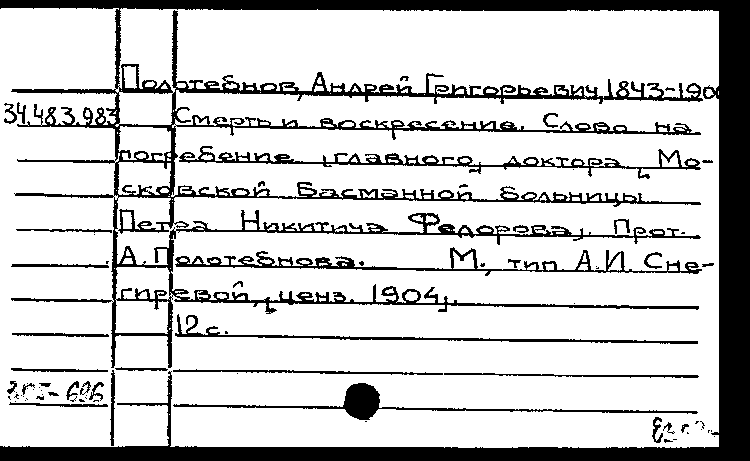 Полотебнов, Андрей Григорьевич, 1843-190
34.483.983 Смерть и воскресение. Слово на
погребение [главного] доктора [Мо-
сковской Басманной больницы
Петра Никитича Федорова]. Прот.
А. Полотебнова. М., тип А.И. Сне-
гиревой, [ценз. 1904].
12 с.